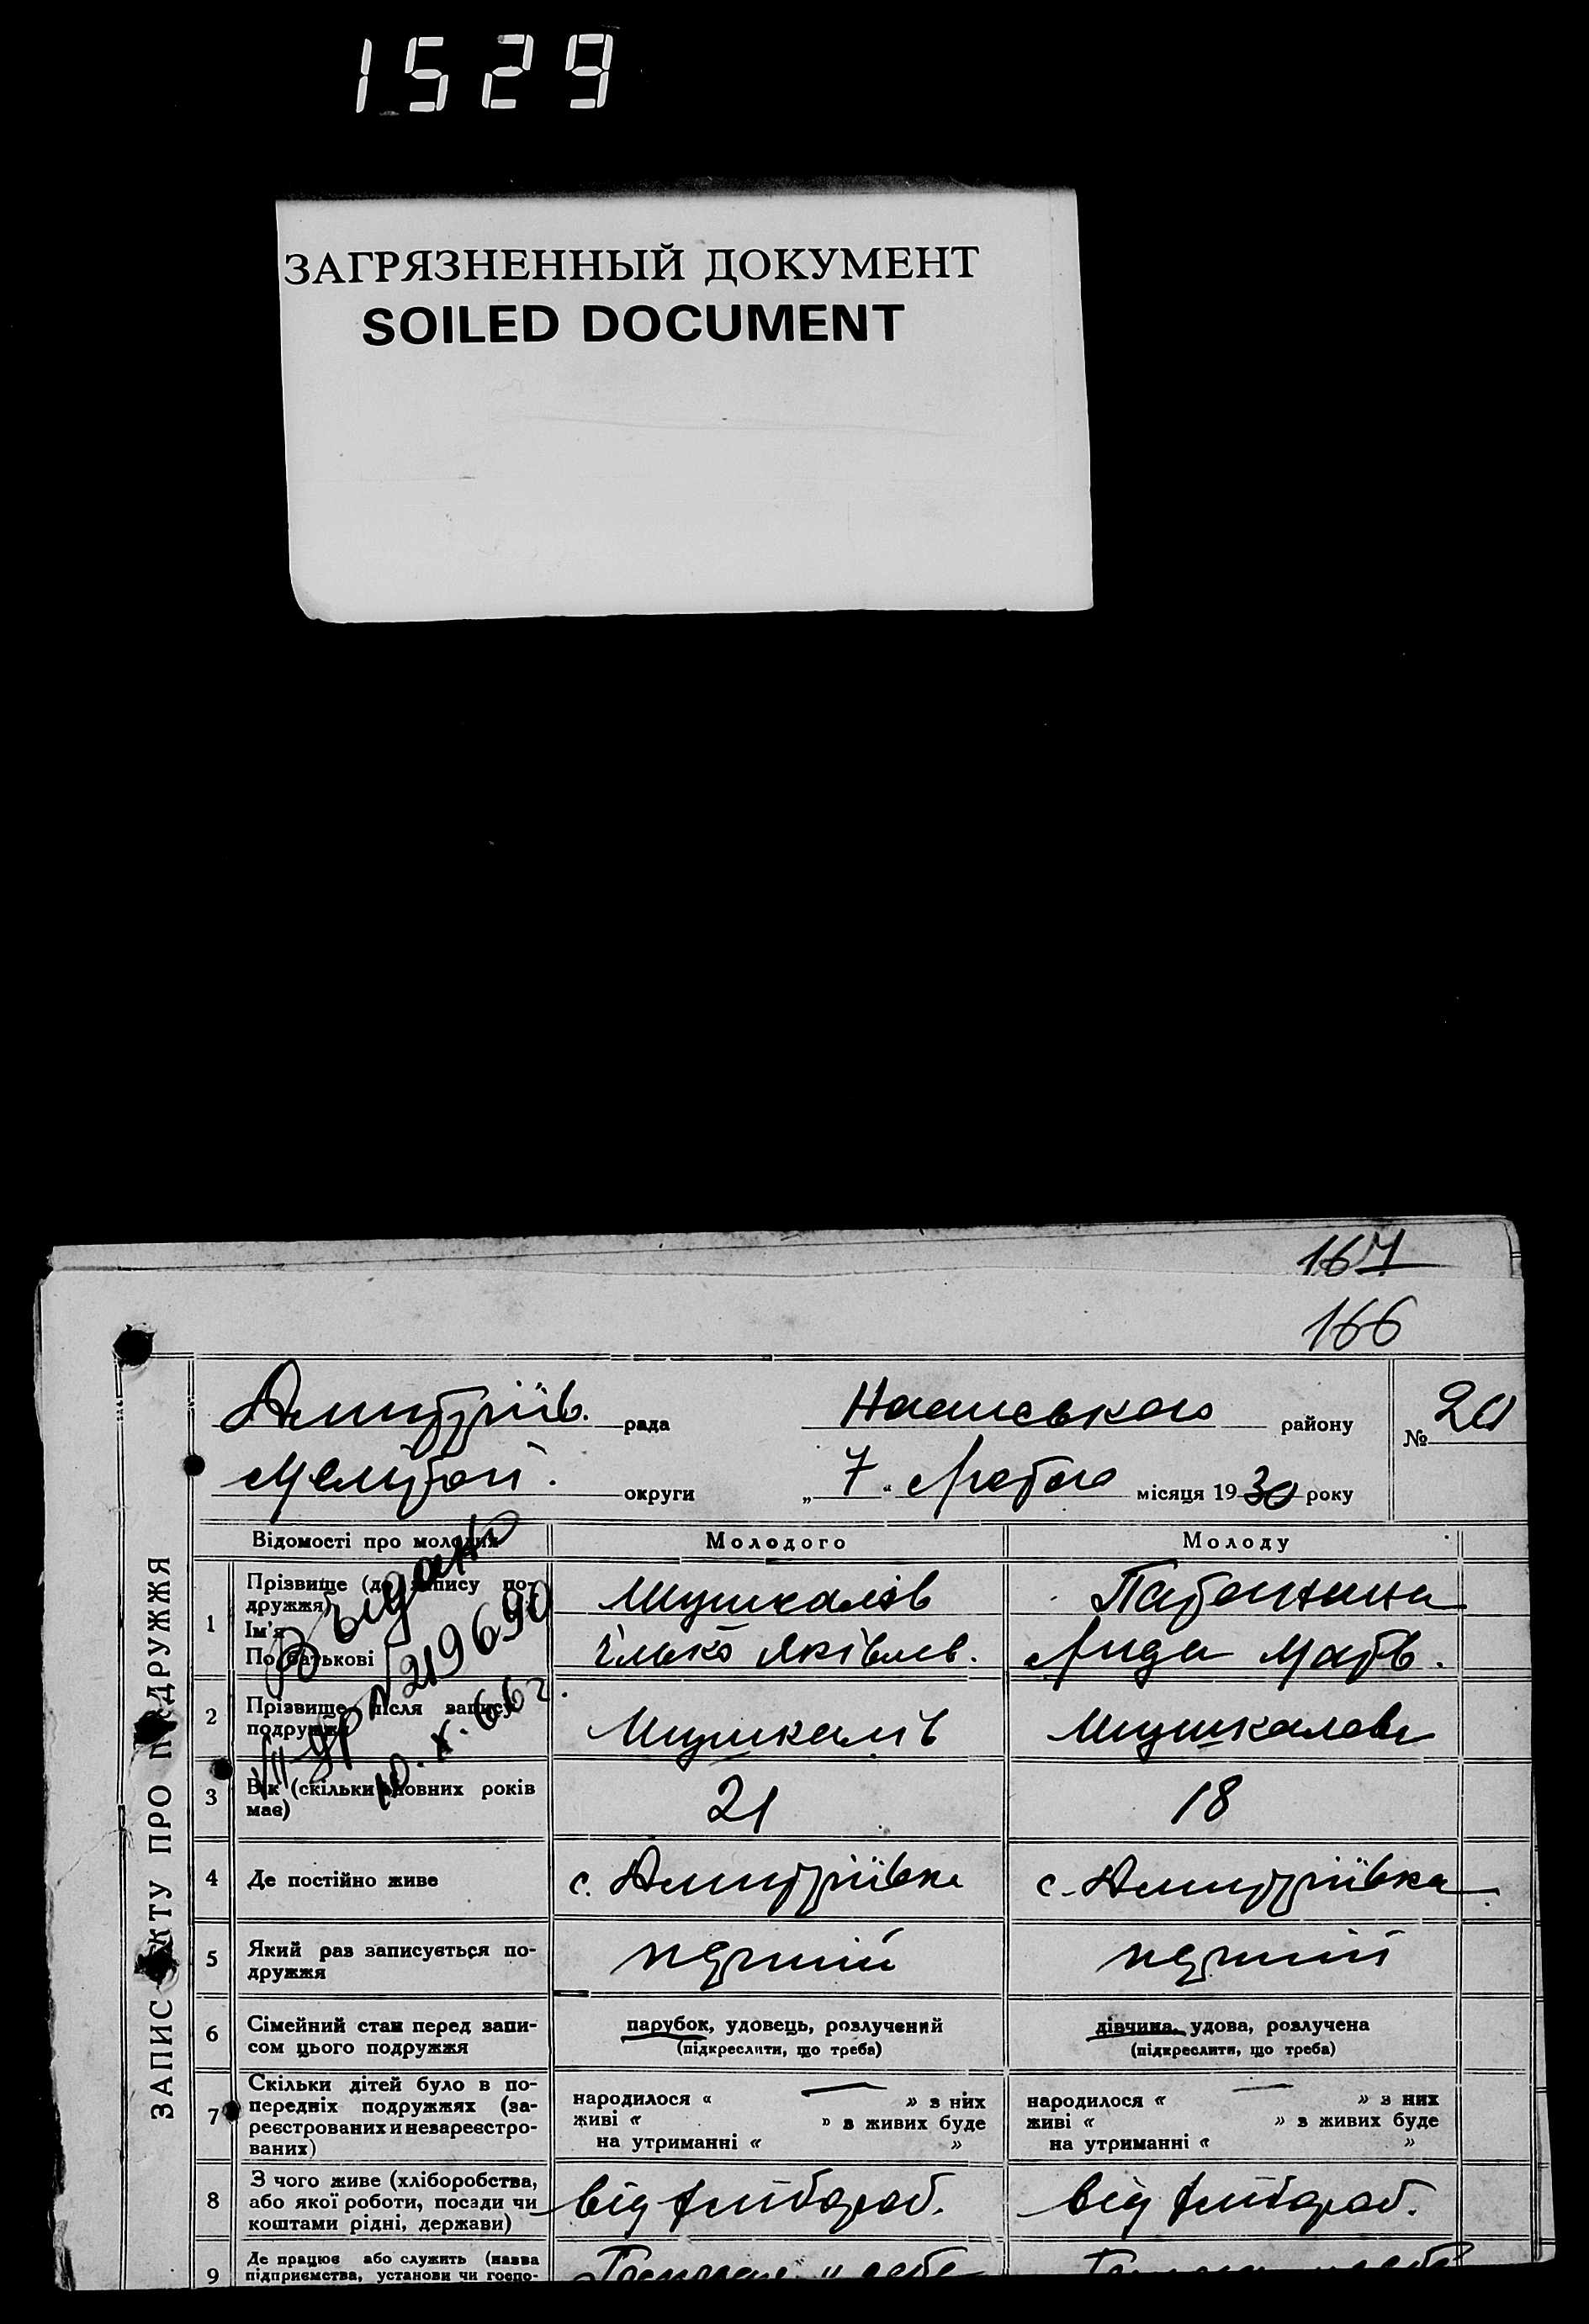 1529
ЗАГРЯЗНЕННЫЙ ДОКУМЕНТ
SOILED DOCUMENT
167
166
Дмитріїв. рада
району
№ 20
Мелітоп. округи „7“ Лютого місяця 1930 року
ЗАПИС АКТУ ПРО ПОДРУЖЖЯ
Відомості про молодих
Молодого
Молоду
1
Прізвище (до запису по-
дружжя)
Ім'я
По батькові
Мушкалів
Ілько Яківлев.
Ліда Матв.
Видано
219690
10.X.66г.
2
Прізвище після запису
подружжя
Мушкалів
Мушкалова
3
Вік (скільки повних років
має)
21
18
4
Де постійно живе
с. Дмитріївка
с. Дмитріївка
5
Який раз записується по-
дружжя
перший
перший
6
Сімейний стан перед запи-
сом цього подружжя
парубок, удовець, розлучений
(підкреслити, що треба)
дівчина, удова, розлучена
(підкреслити, що треба)
7
Скільки дітей було в по-
передніх подружжях (за-
реєстрованих и незареєстро-
ваних)
народилося « — » з них
живі « » з живих буде
на утриманні « »
народилося « — » з них
живі « » з живих буде
на утриманні « »
8
З чого живе (хліборобства,
або якої роботи, посади чи
коштами рідні, держави)
від хлібороб.
від хлібороб.
9
Де працює або служить (назва
підприємства, установи чи госпо-